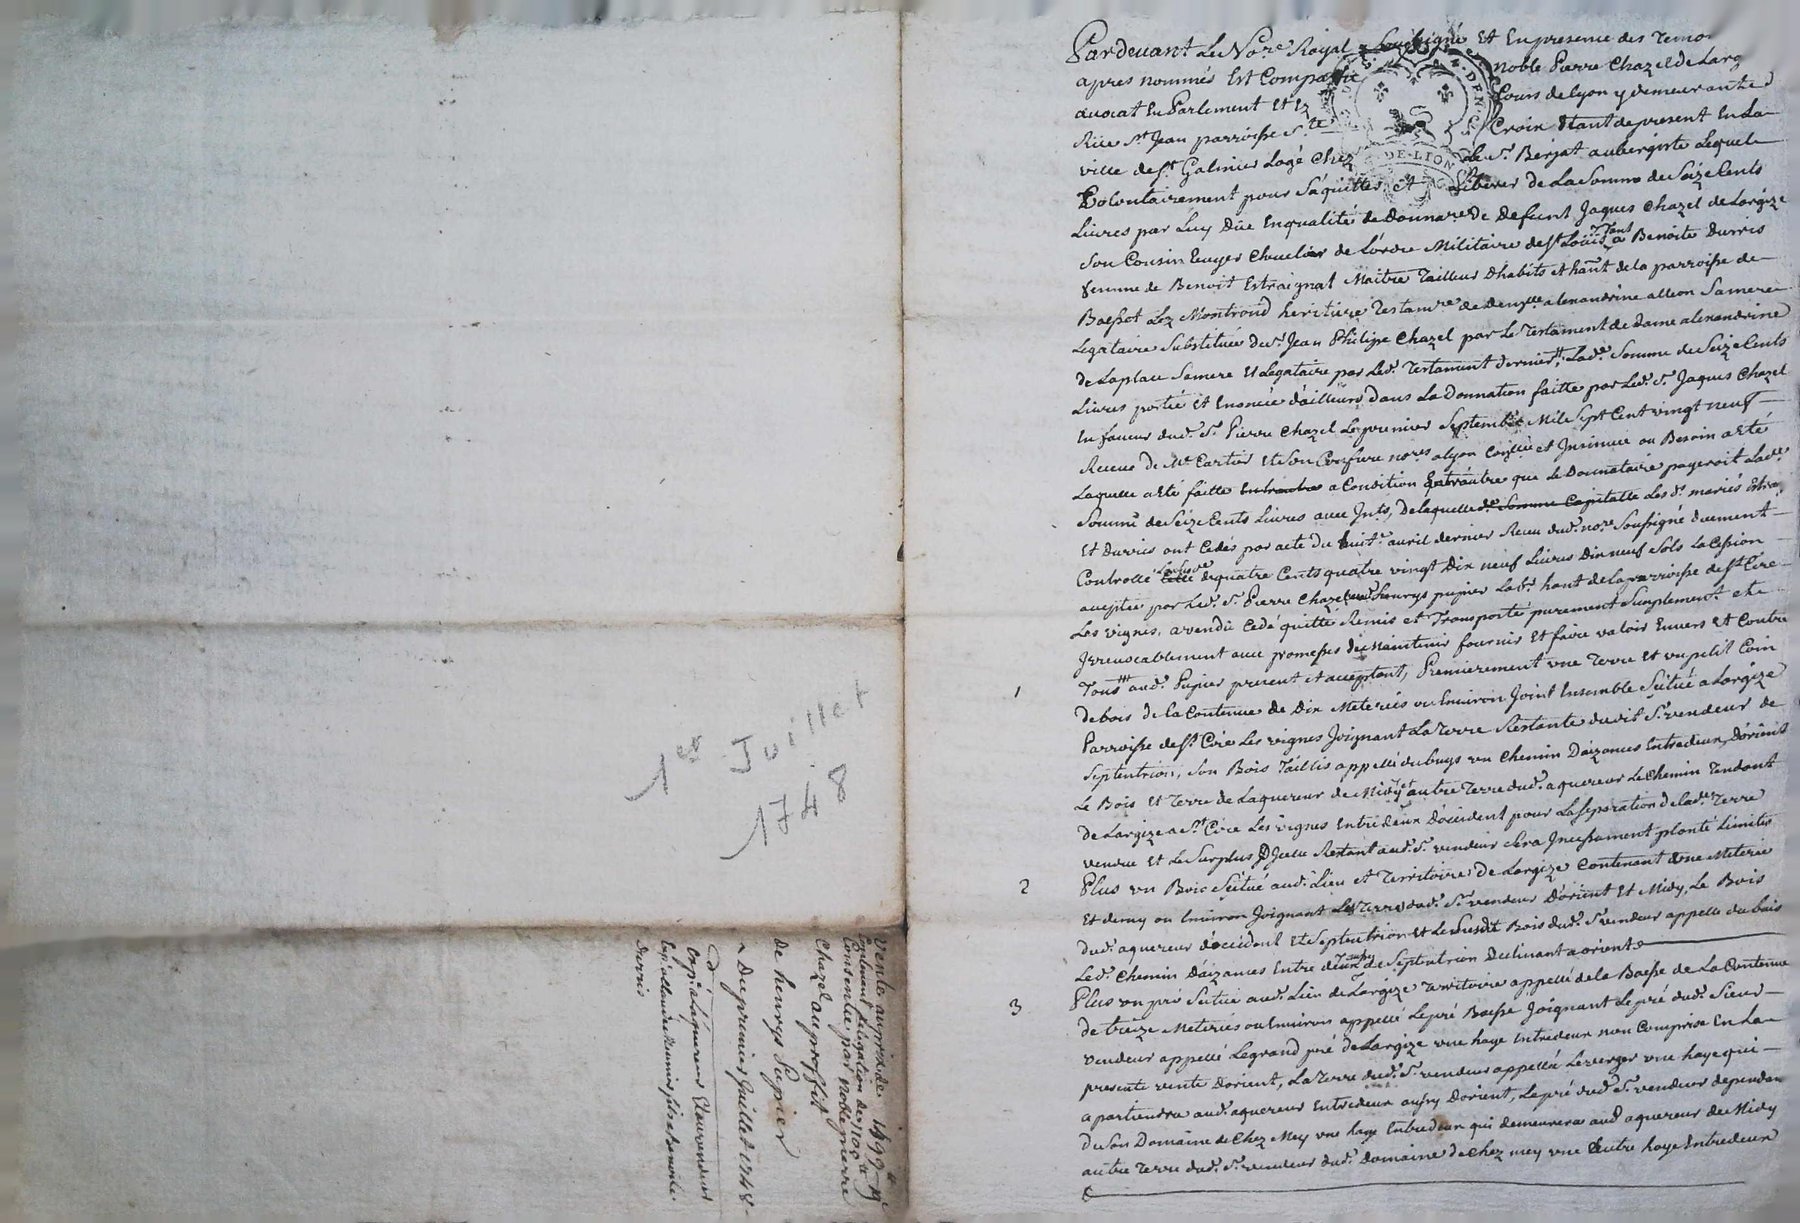 1er Juillet
1748
Vente au prix de 1499
Contenant delegation de
Consentie par Noble pierre
Chazel au proffit
de heurys Pupier
Du premier Juillet 1748
Exp.on a l'aquereur
Durris
Pardevant Le No.re Royal Soussigné Et En presence des Temo
apres nommés Est Comparu noble Pierre Chazel de Larg
avocat En Parlement Et Ez Cours de Lyon y demeurant
Rüe St Jean parroisse Ste Croix Etant de present En La
ville de St Galmier Logé Chez Le Sr. Berjat aubergiste Lequel
Volontairement pour S'aquitter Et Liberer de La Somme de Seize Cents
Livres par Luy Düe En qualité de Donnare de Defunt Jaques Chazel de Largize
Son Cousin Ecuyer Chevelier de L'ordre Militaire de St Loüis a Benoite Durris
femme de Benoit Estraignat Maitre Tailleur D'habits et hant de la parroisse de
Boisset Lez Montrond heritiere Testamre de alexandrine alleon Sa mere
Legataire Substituée du Sr Jean Philipe Chazel par Le Testament de dame alexandrine
de Laplau Sa mere Et Legataire par Led. Testament dernier, Lad.e Somme de Seize Cents
Livres portée Et Enoncée d'ailleurs dans La Donnation faitte par Led. Sr. Jaques Chazel
En faveur dud. Sr. Pierre Chazel Le premier Septembre Mile Sept Cent vingt neuf
Receue de Me Cartier Et Son Confrere nores a Lyon et Insinuée ou Besoin a Eté
Laquelle a Eté faitte a Condition Entrautre que Le Donnataire payeroit Lad.e
Somme de Seize Cents Livres avec Jnts, de laquelle Somme Capitalle Les d. mariés
Et Durris ont Cedés par acte du huit avril dernier Receu dud. nore Soussigné duement
Controllé Celle de quatre Cents quatre vingt Dix neuf Livres Dix neuf Sols La Cession
aceptée par Led. Sr. Pierre Chazel heurys pupier Labr. hant de La parroisse de St Cire
Les vignes, a vendu Cedé quitté Remis et Transporté purement Simplement et
Irrevocablement avec promesses de Maintenir fournir Et faire valoir Envers Et Contre
Tous aud. Pupier present et aceptant, Premierement une Terre Et un petit Coin
1 de bois de La Contenue de Dix Meterées ou Environ Joint Ensemble Scitué a Largize
Parroisse de St. Cire Les vignes Joignant La Terre Restante dudit Sr. vendeur de
Septentrion, Son Bois Taillis appellé du buys un Chemin D'aizances Entredeux, D'orient
Le Bois Et Terre de Laquereur de Midy autre Terre dud. aquereur Le Chemin Tendant
de Largize a St Cire Les vignes Entredeux D'occident pour La Separation de Lad. Terre
vendue Et Le Surplus D'Jcelle Restant aud. Sr. vendeur Sera Jncessament planté Limites
2 Plus un Bois Scitué aud. Lieu et Territoire de Largize Contenant Une Meterée
Et demy ou Environ Joignant Les Terres dud. Sr. vendeur D'orient Et Midy, Le Bois
dud. aquereur d'occident Et Septentrion Et Le Susdit Bois dud. Sr. vendeur appellé du buis
Led. Chemin D'aizances Entre deux de Septentrion Declinant a orient
3 Plus un pré Scitué aud. Lieu de Largize Territoire appellé de la Baisse de La Contenue
de treize Meterées ou Environ appellé Le pré Baisse Joignant Le pré dud. Sieur
vendeur appellé Le grand pré de Largize une haye Entredeux non Comprise En La
presente vente D'orient, La Terre dud. Sr. vendeur appellée Le verger une haye qui
apartiendra aud. aquereur Entredeux aussy D'orient, Le pré dud. Sr. vendeur dependant
de Son Domaine de Chez Mey une haye Entredeux qui demeurera aud aquereur de Midy
autre Terre dud. Sr. vendeur dud. Domaine de Chez mey une autre haye Entredeux